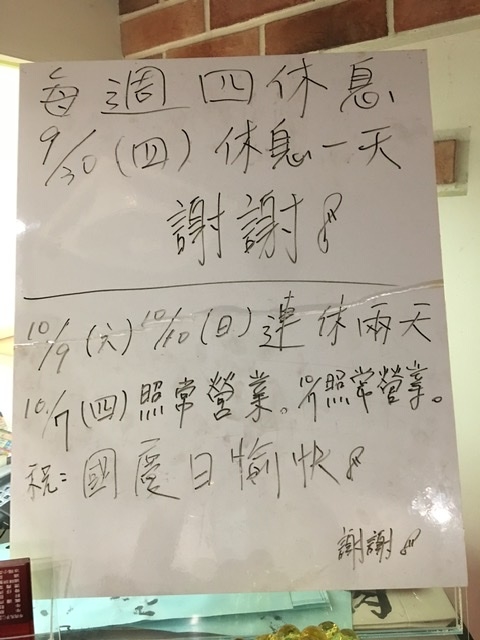 每週四休息
9/30(四)休息一天
謝謝
10/9(六)10/10(日)連休兩天
10/7(四)照常營業。10/11照常營業。
祝:國慶日愉快
謝謝